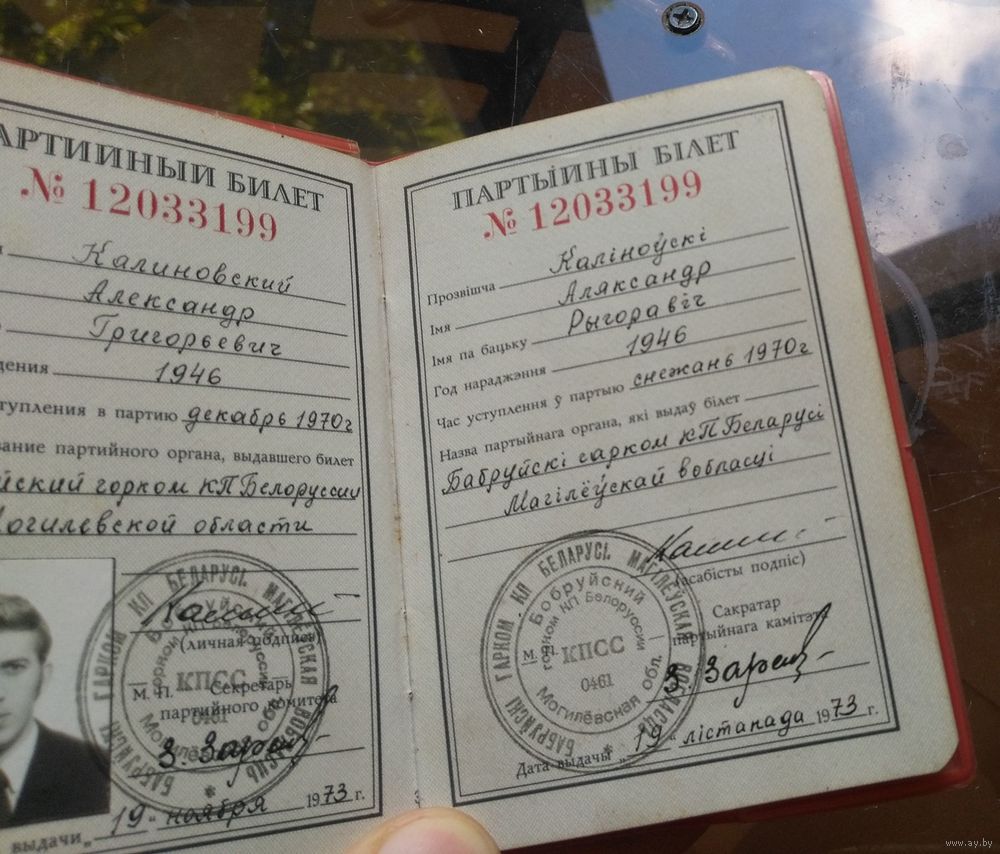 АРТИЙНЫЙ БИЛЕТ
№ 12033199
Калиновский
Александр
Григорьевич
дения 1946
тупления в партию декабрь 1970г
вание партийного органа, выдавшего билет
йский горком КП Белоруссии
Могилевской области
(личная подпись)
М. П. Секретарь
партийного комитета
З. Зарец
выдачи „19“ ноября 1973 г.
БАБРУЙСКІ ГАРКОМ КП БЕЛАРУСІ. МАГІЛЁЎСКАЯ ВОБЛАСЦЬ
Бобруйский горком КП Белоруссии
Могилёвская обл.
КПСС
0461
ПАРТЫЙНЫ БІЛЕТ
№ 12033199
Прозвішча Каліноўскі
Імя Аляксандр
Імя па бацьку Рыгоравіч
Год нараджэння 1946
Час уступлення ў партыю снежань 1970г
Назва партыйнага органа, які выдаў білет
Бабруйскі гарком КП Беларусі
Магілёўскай вобласці
(асабісты подпіс)
Сакратар
М. П. партыйнага камітэта
З. Зарец
Дата выдачы „19“ лістапада 1973 г.
БАБРУЙСКІ ГАРКОМ КП БЕЛАРУСІ. МАГІЛЁЎСКАЯ ВОБЛАСЦЬ
Бобруйский горком КП Белоруссии
Могилёвская обл.
КПСС
0461
www.ay.by